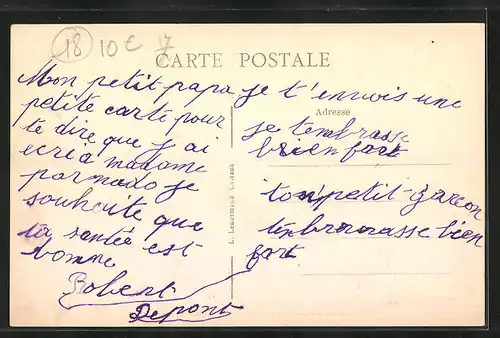 18 10 €
CARTE POSTALE
Adresse
Mon petit papa je t'envois une
petite carte pour
te dire que j'ai
ecri à madame
je
souhaite que
ta santée est
bonne
Robert
Depont
je tembrasse
brien fort
ton petit garcon
bien
fort